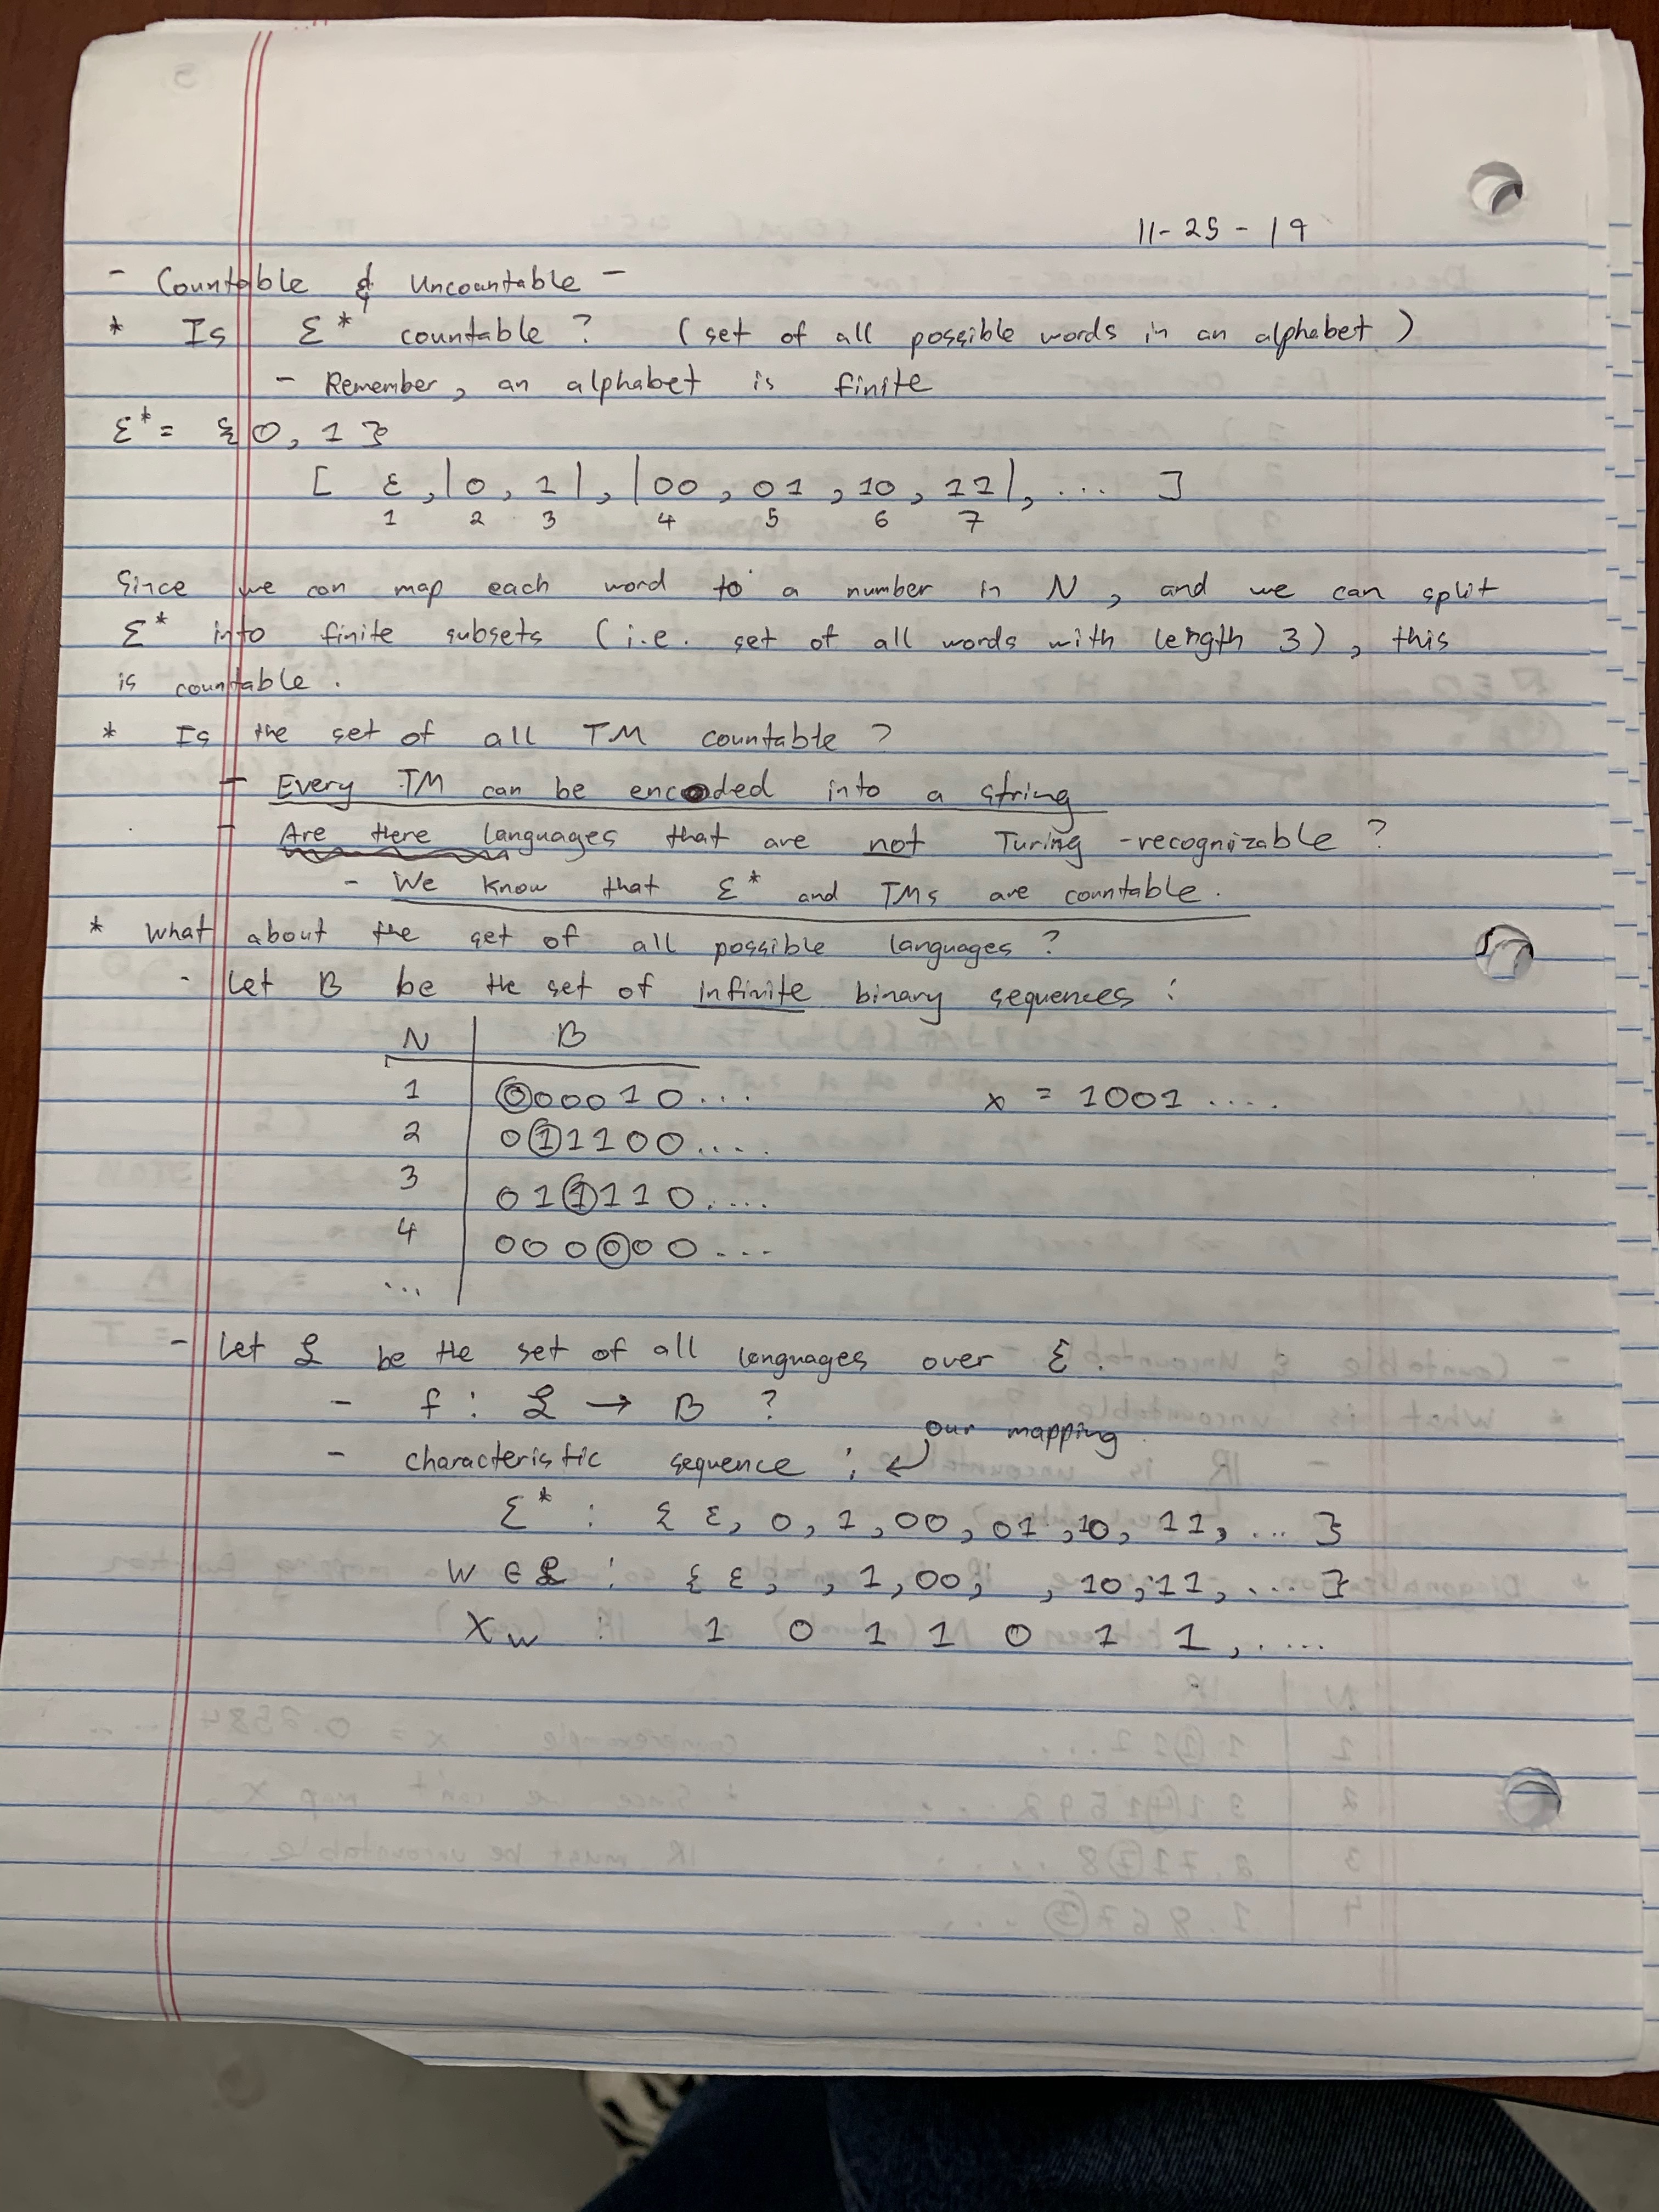 11-25-19
- Countable & Uncountable -
* Is Σ* countable? (set of all possible words in an alphabet)
- Remember, an alphabet is finite
Σ* = {0, 1}
[ ε, |0, 1|, |00, 01, 10, 11|, ... ]
1 2 3 4 5 6 7
Since we can map each word to a number in N, and we can split
Σ* into finite subsets (i.e. set of all words with length 3), this
is countable.
* Is the set of all TM countable?
- Every TM can be encoded into a string
- Are there languages that are not Turing-recognizable?
- We know that Σ* and TMs are countable.
* What about the set of all possible languages?
- Let B be the set of infinite binary sequences:
N | B
1 | 000010... x = 1001....
2 | 011100....
3 | 011110....
4 | 000000...
...
- Let ℒ be the set of all languages over Σ.
- f: ℒ → B ?
our mapping
- characteristic sequence: ↙
Σ* : { ε, 0, 1, 00, 01, 10, 11, ... }
W ∈ ℒ : { ε, , 1, 00, , 10, 11, .... }
Xw : 1 0 1 1 0 1 1, ....